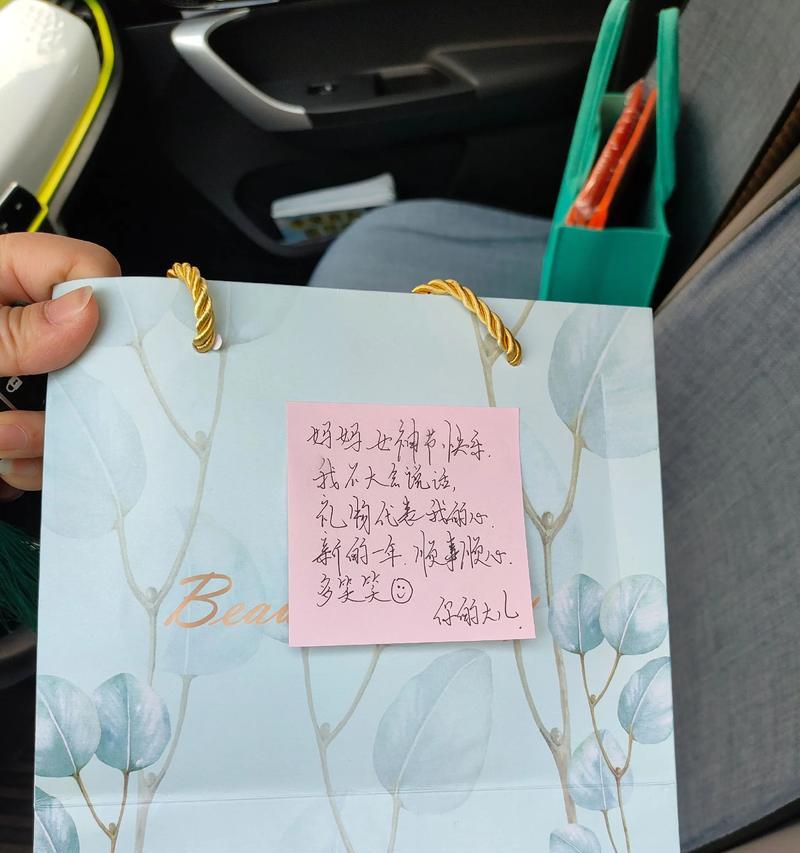 妈妈女神节快乐.
我不大会说话,
礼物代表我的心.
新的一年.顺事顺心.
多笑笑
你的大儿.
Beau